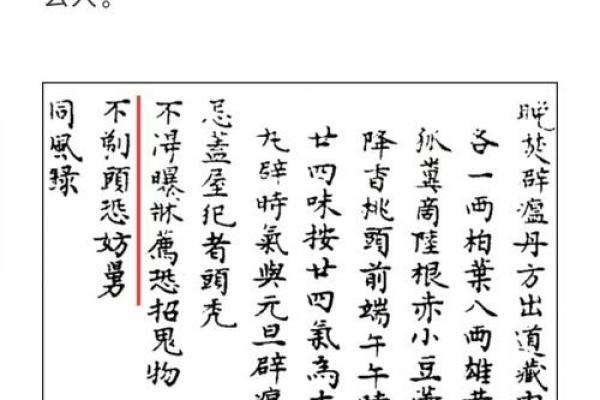 晚焚辟瘟丹方出道藏
各一两柏葉八两雄
狐糞商陸根赤小豆
降香桃頭前端午午
廿四味按廿四氣為
丸辟時氣與元旦辟瘟
忌蓋屋犯者頭禿
不得曝牀薦恐招鬼物
不剃頭恐妨舅
同風錄